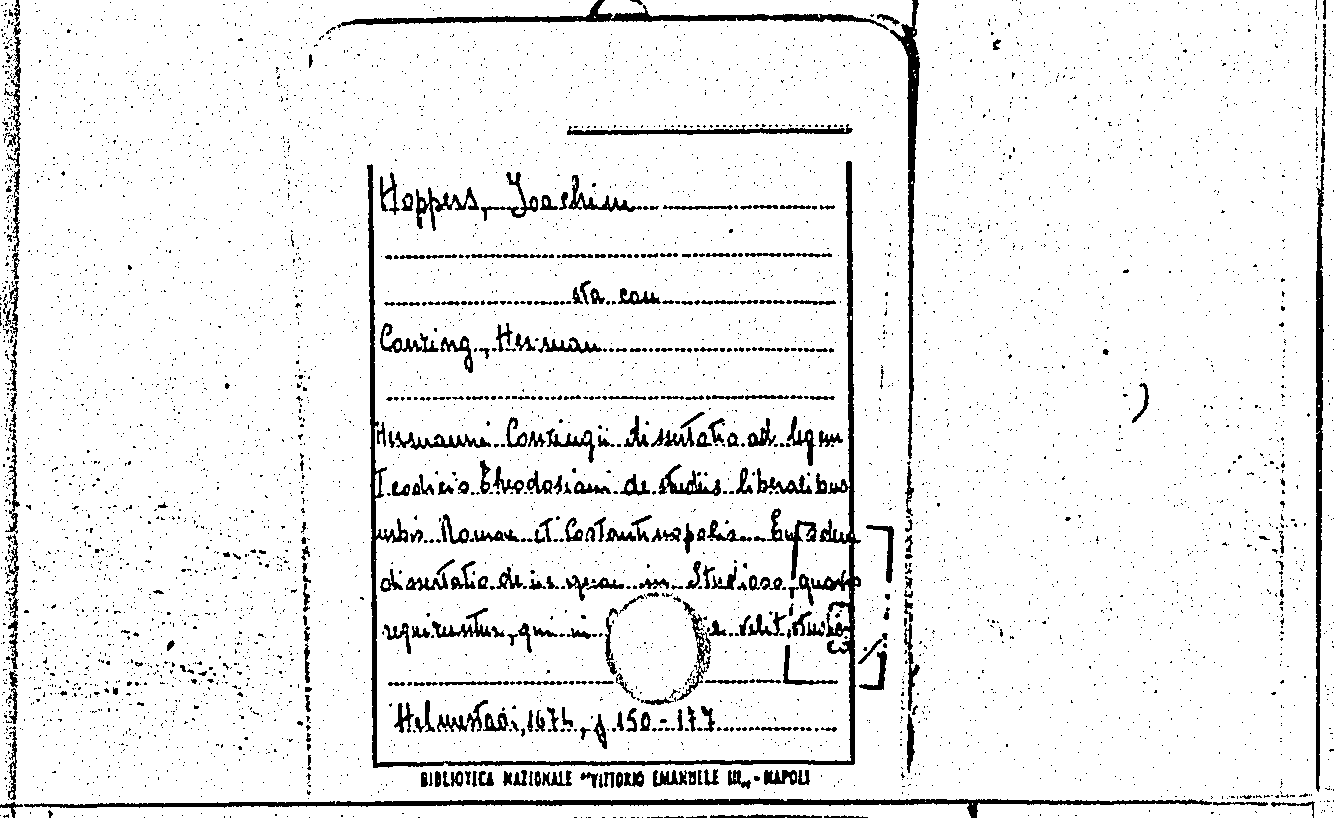 Hoppers, Joachim
sta con
Conring, Herman
Hermanni Conringii dissertatio ad legem
I codicis Theodosiani de studiis liberalibus
urbis Romae et Costantinopolis. Eiusdem
dissertatio de iis quae in Studioso, quovis
requiruntur, qui in velit
Helmestadi, 167 , p 150-177
BIBLIOTECA NAZIONALE "VITTORIO EMANUELE III„ - NAPOLI